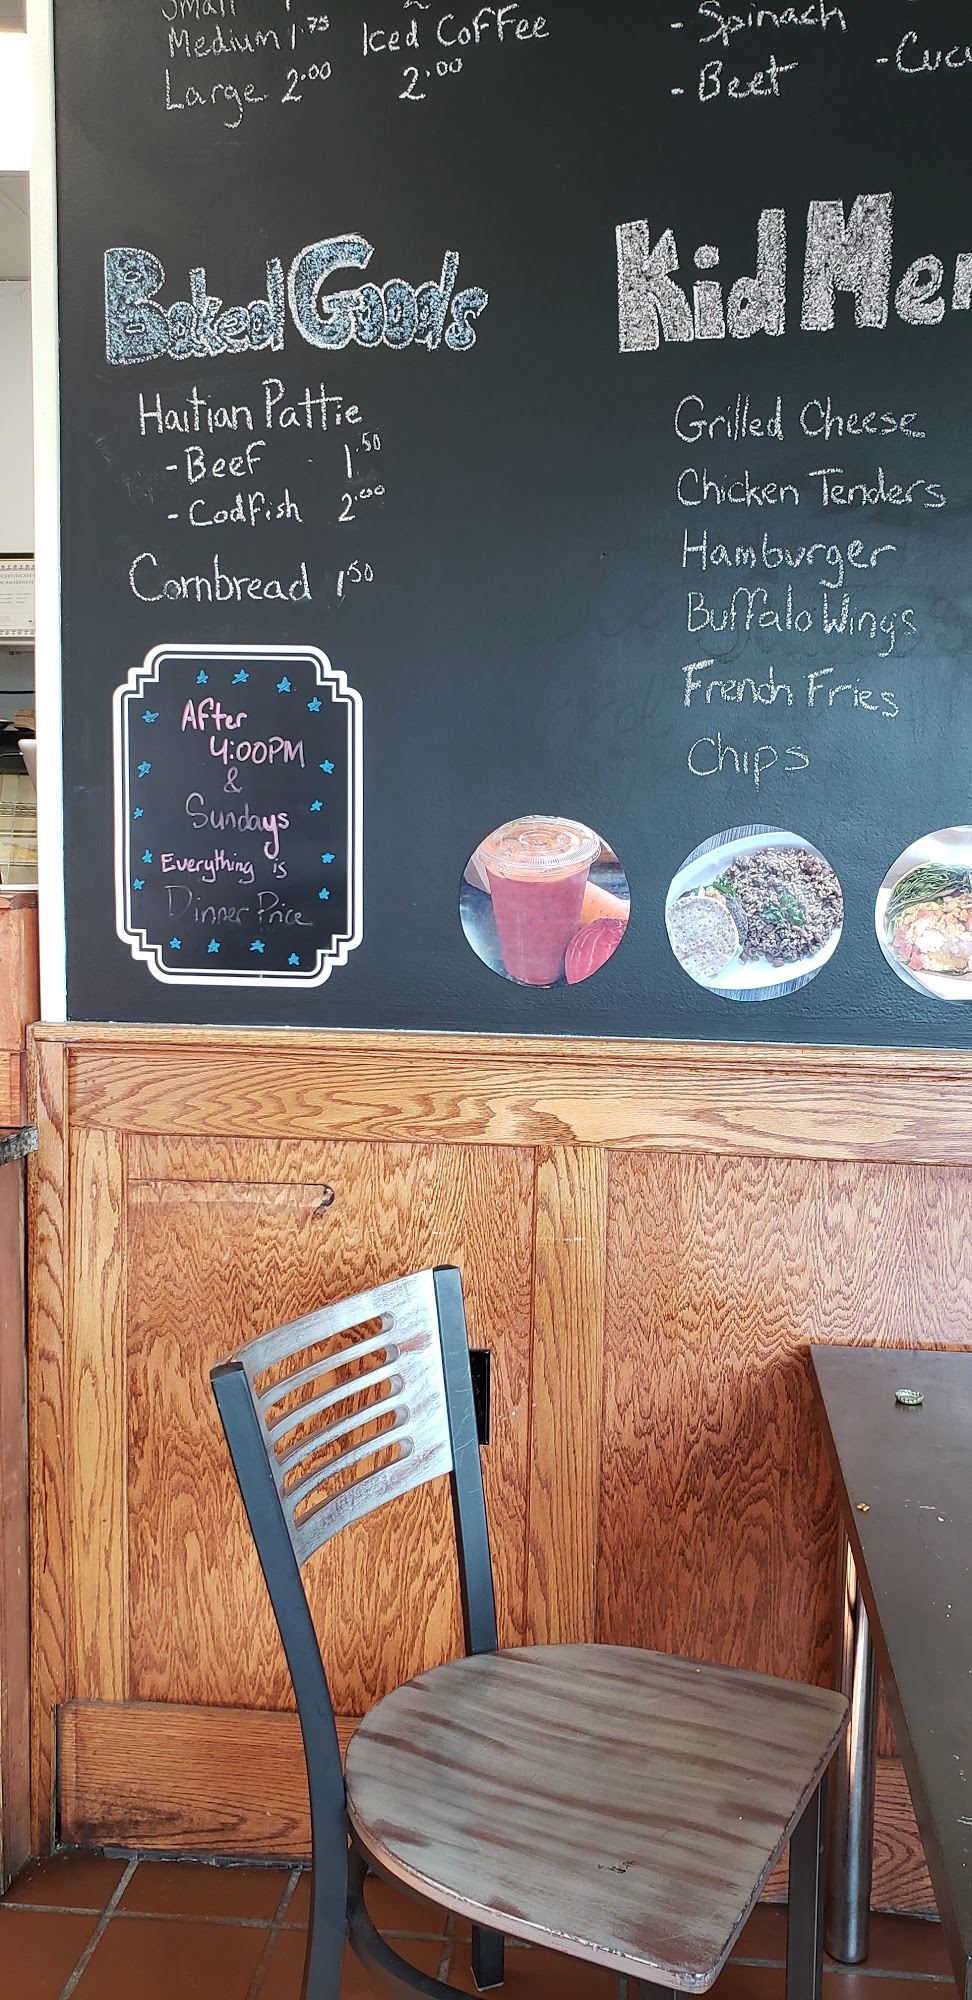 Small
Medium 1.75
Large 2.00
Iced Coffee
2.00
- Spinach
- Beet
Baked Goods
Haitian Pattie
- Beef 1.50
- Codfish 2.00
Cornbread 1.50
After
4:00PM
&
Sundays
Everything is
Dinner Price
Kid Men
Grilled Cheese
Chicken Tenders
Hamburger
Buffalo Wings
French Fries
Chips